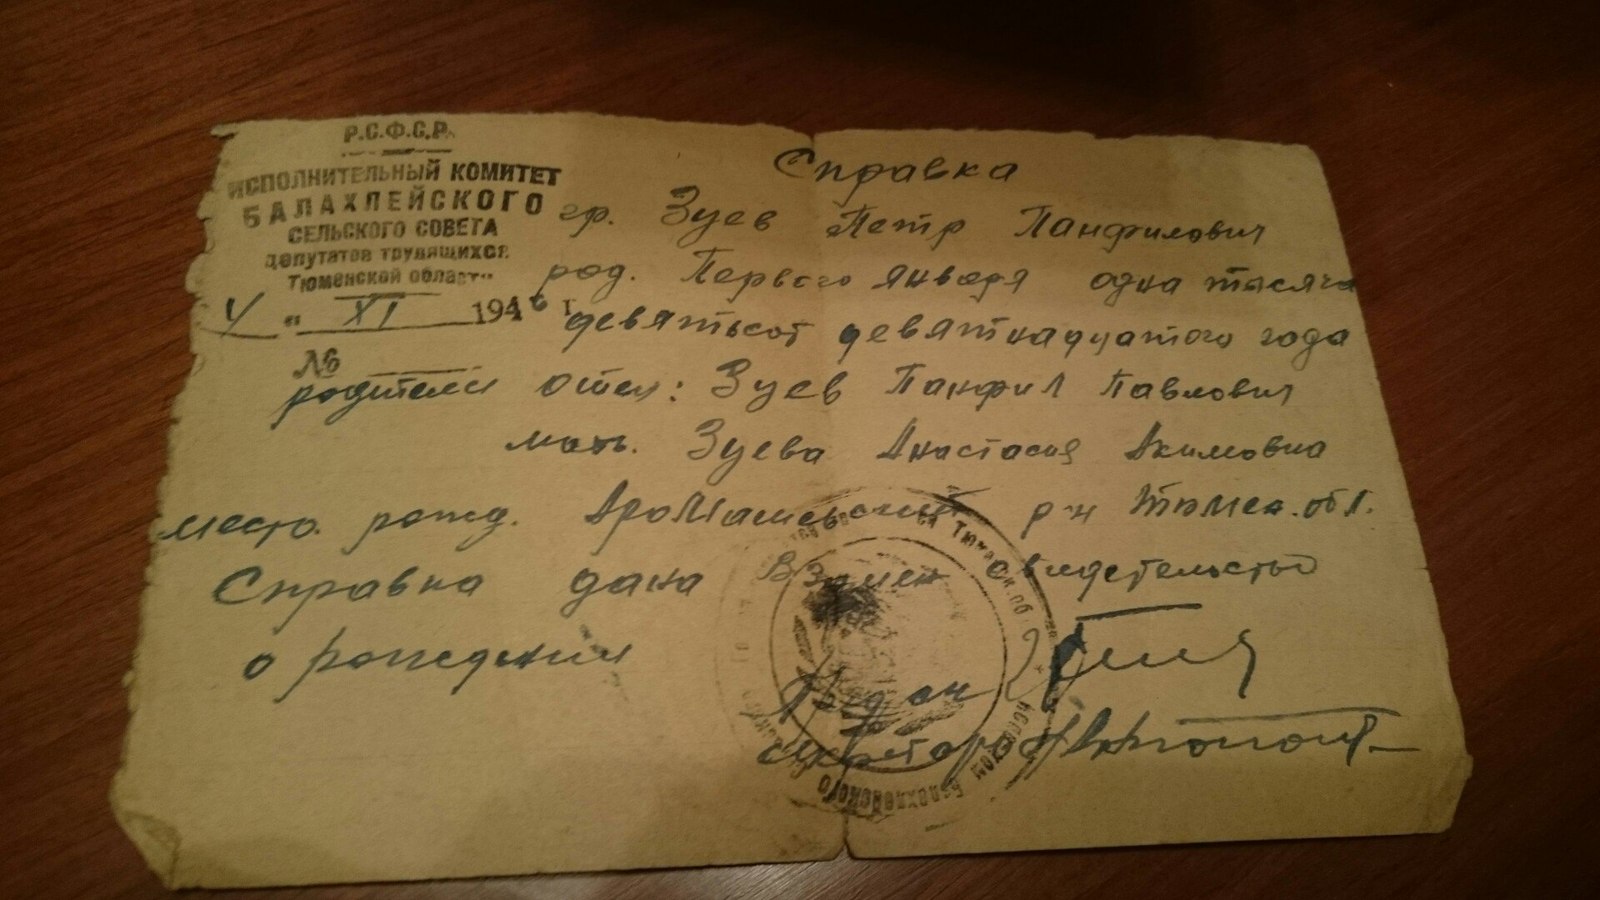 Р.С.Ф.С.Р.
ИСПОЛНИТЕЛЬНЫЙ КОМИТЕТ
БАЛАХЛЕЙСКОГО
СЕЛЬСКОГО СОВЕТА
депутатов трудящихся
Тюменской области
" XI 1946 г.
№
Справка
гр. Зуев Петр Панфилович
род. Первого января одна тысяча
девятьсот девятнадцатого года
родители отец: Зуев Панфил Павлович
мать. Зуева Анастасия Акимовна
место. рожд. Аромашевский р-н Тюмен. обл.
Справка дана взамен свидетельство
о рождении
Балахлейского